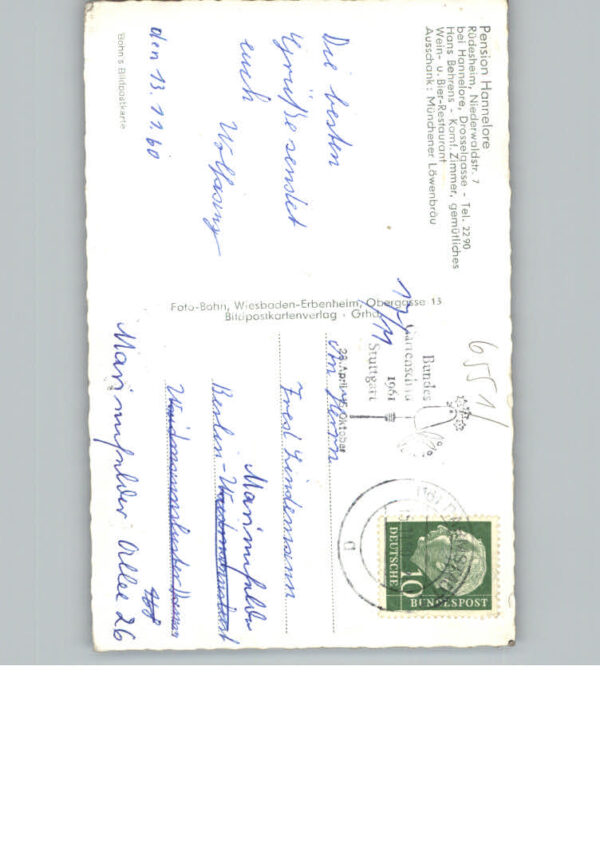 Pension Hannelore
Rüdesheim, Niederwaldstr. 7
bei Hannelore, Drosselgasse - Tel. 2290
Hans Behrens - Komf. Zimmer, gemütliches
Wein- u. Bier-Restaurant
Ausschank: Münchener Löwenbräu
Die besten
Grüße sendet
euch Wolfgang
den 13.11.60
Bohn's Bildpostkarte
Foto-Bohn, Wiesbaden-Erbenheim, Obergasse 13
Bildpostkartenverlag
6551/
17/11
Bundes
Gartenschau
1961
Stuttgart
28. April Oktober
DEUTSCHE
10
BUNDESPOST
An Herrn
Fred Lindemann
Marienfelde
Berlin-
Marienfelder Allee 26